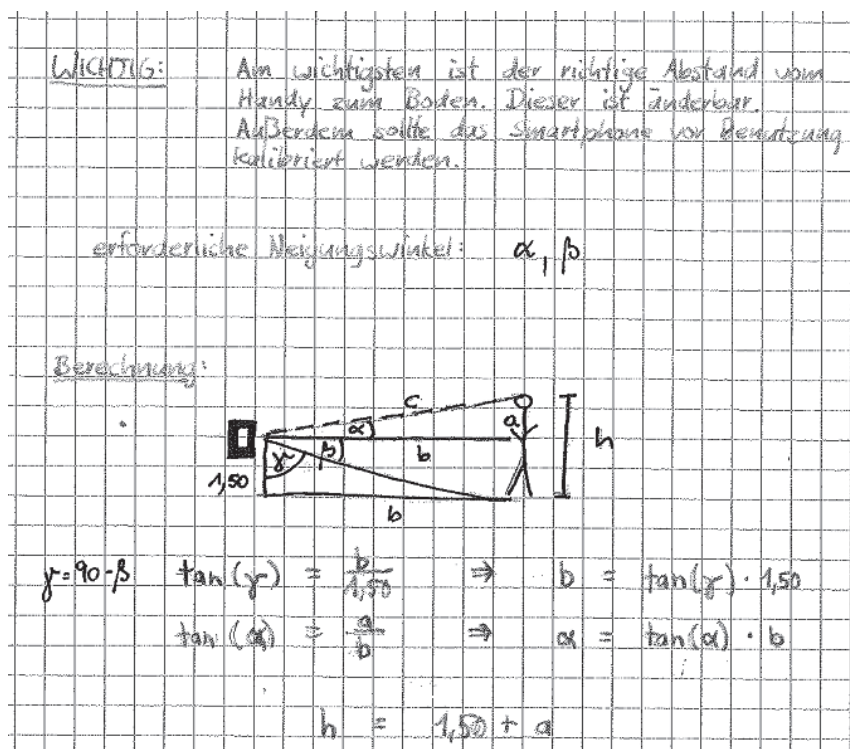 WICHTIG: Am wichtigsten ist der richtige Abstand vom
Handy zum Boden. Dieser ist änderbar.
Außerdem sollte das Smartphone vor Benutzung
kalibriert werden.
erforderliche Neigungswinkel: α, β
Berechnung:
c
α
a
β
b
h
γ
1,50
b
γ = 90 - β tan(γ) = b/1,50 ⇒ b = tan(γ) · 1,50
tan(α) = a/b ⇒ α = tan(α) · b
h = 1,50 + a